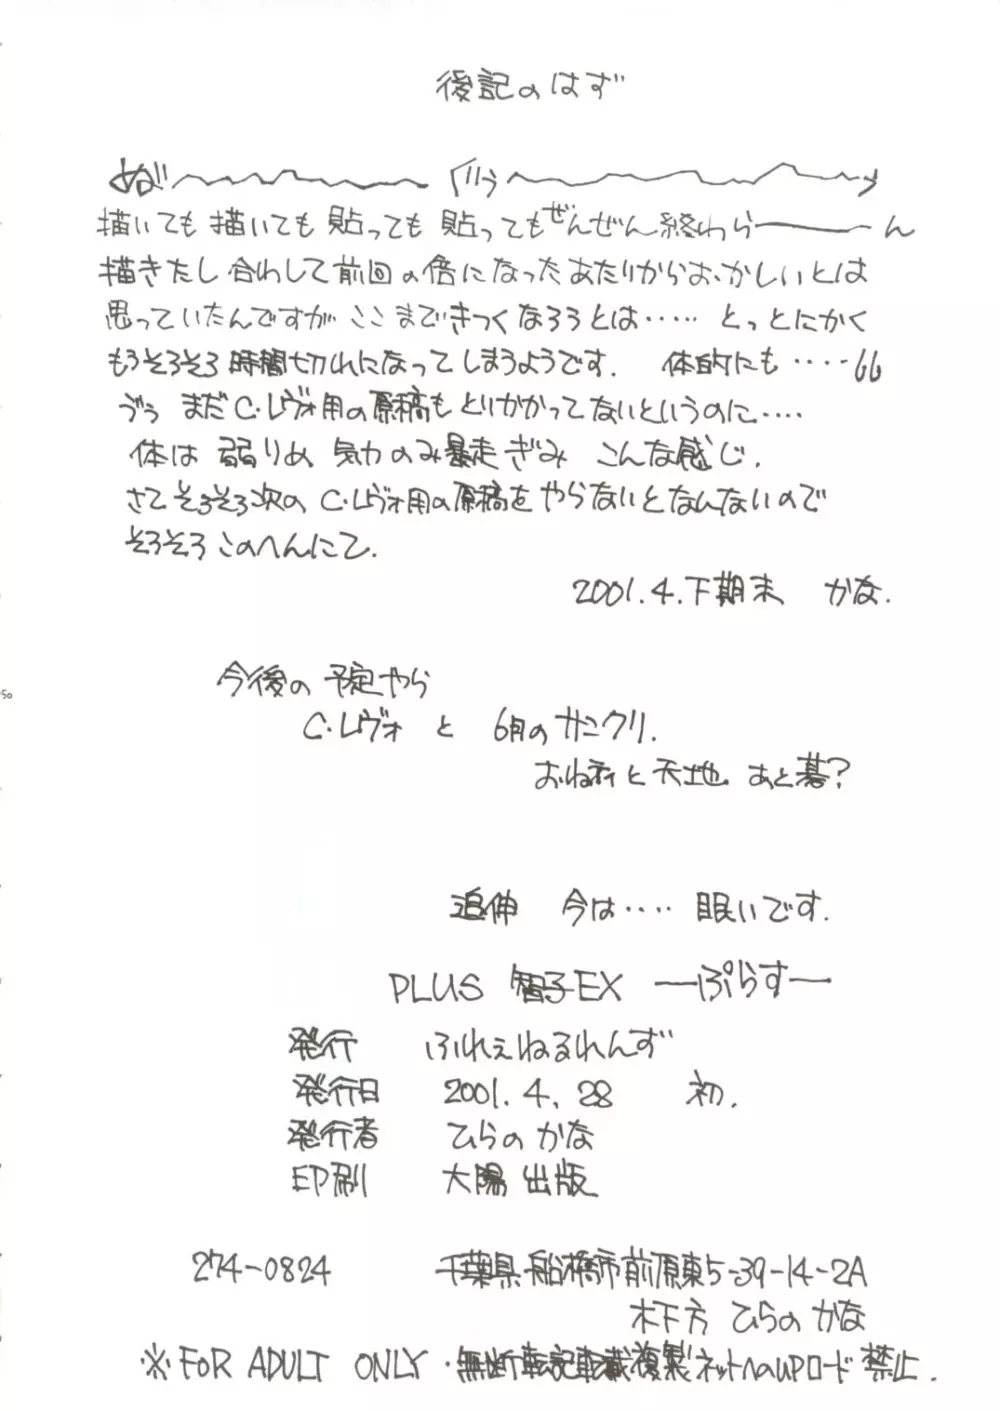 後記のはず
ぬ゛〜〜〜 ぐぅ〜〜〜っ
描いても描いても貼っても貼ってもぜんぜん終わら―――ん
描きたし合わして前回の倍になったあたりからおかしいとは
思っていたんですがここまできつくなろうとは‥‥‥ とっとにかく
もうそろそろ時間切れになってしまうようです. 体的にも ‥‥‥
ゔぅ まだC.レヴォ用の原稿もとりかかってないというのに‥‥
体は弱りめ 気力のみ暴走ぎみ こんな感じ.
さてそろそろ次のC.レヴォ用の原稿をやらないとなんないので
そろそろこのへんにて.
2001.4.下期末 かな.
今後の予定やら
C.レヴォ と 6月のサンクリ.
おねティと天地 あと碁?
50
追伸 今は‥‥ 眠いです.
PLUS 智子EX ―ぷらす―
発行 ふれぇねるれんず
発行日 2001.4.28 初.
発行者 ひらの かな
印刷 大陽出版
274-0824 千葉県船橋市前原東5-39-14-2A
木下方 ひらの かな
※FOR ADULT ONLY・無断転記転載複製ネットへのUPロード禁止.